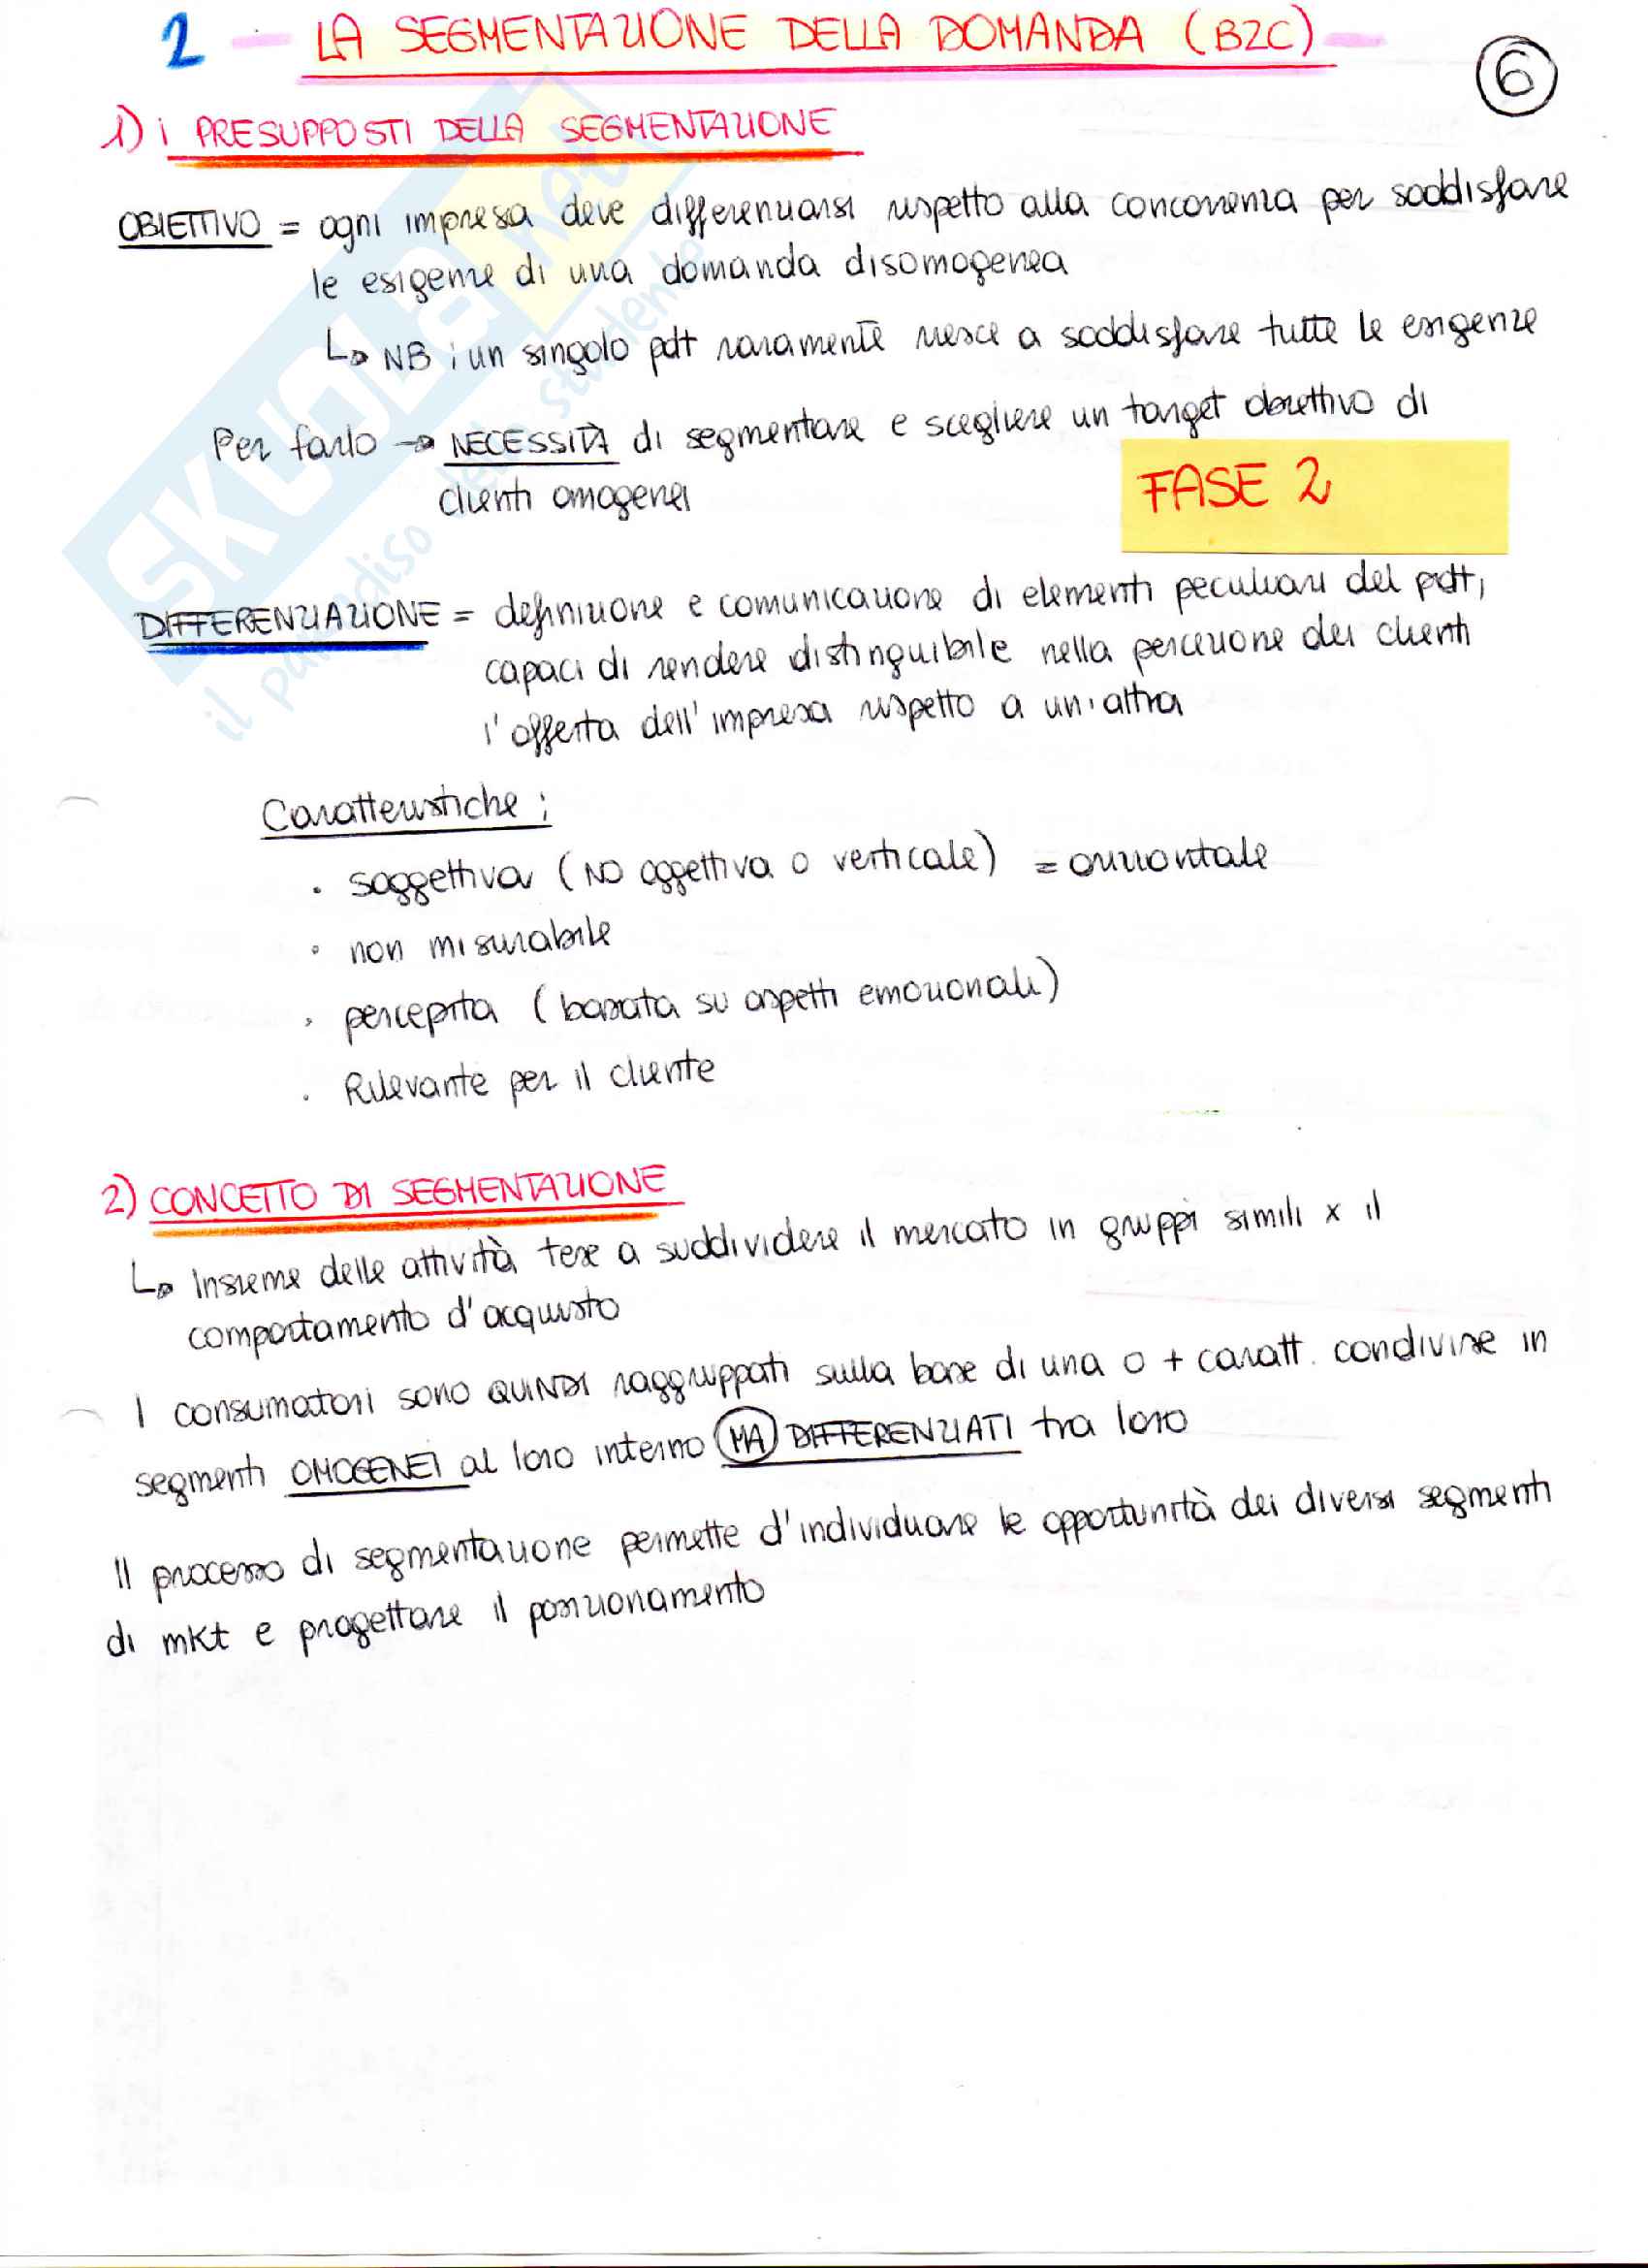 2 - LA SEGMENTAZIONE DELLA DOMANDA (B2C)
6
1) i PRESUPPOSTI DELLA SEGMENTAZIONE
OBIETTIVO = ogni impresa deve differenziarsi rispetto alla concorrenza per soddisfare
le esigenze di una domanda disomogenea
↳ NB: un singolo pdt raramente riesce a soddisfare tutte le esigenze
Per farlo → NECESSITÀ di segmentare e scegliere un target obiettivo di
clienti omogenei
FASE 2
DIFFERENZIAZIONE = definizione e comunicazione di elementi peculiari del pdt,
capaci di rendere distinguibile nella percezione dei clienti
l'offerta dell'impresa rispetto a un'altra
Caratteristiche:
• soggettiva (NO oggettiva o verticale) = orizzontale
• non misurabile
• percepita (basata su aspetti emozionali)
• Rilevante per il cliente
2) CONCETTO DI SEGMENTAZIONE
↳ Insieme delle attività tese a suddividere il mercato in gruppi simili x il
comportamento d'acquisto
I consumatori sono QUINDI raggruppati sulla base di una o + caratt. condivise in
segmenti OMOGENEI al loro interno MA DIFFERENZIATI tra loro
Il processo di segmentazione permette d'individuare le opportunità dei diversi segmenti
di mkt e progettare il posizionamento
SKUOLA.net
il paradiso dello studente